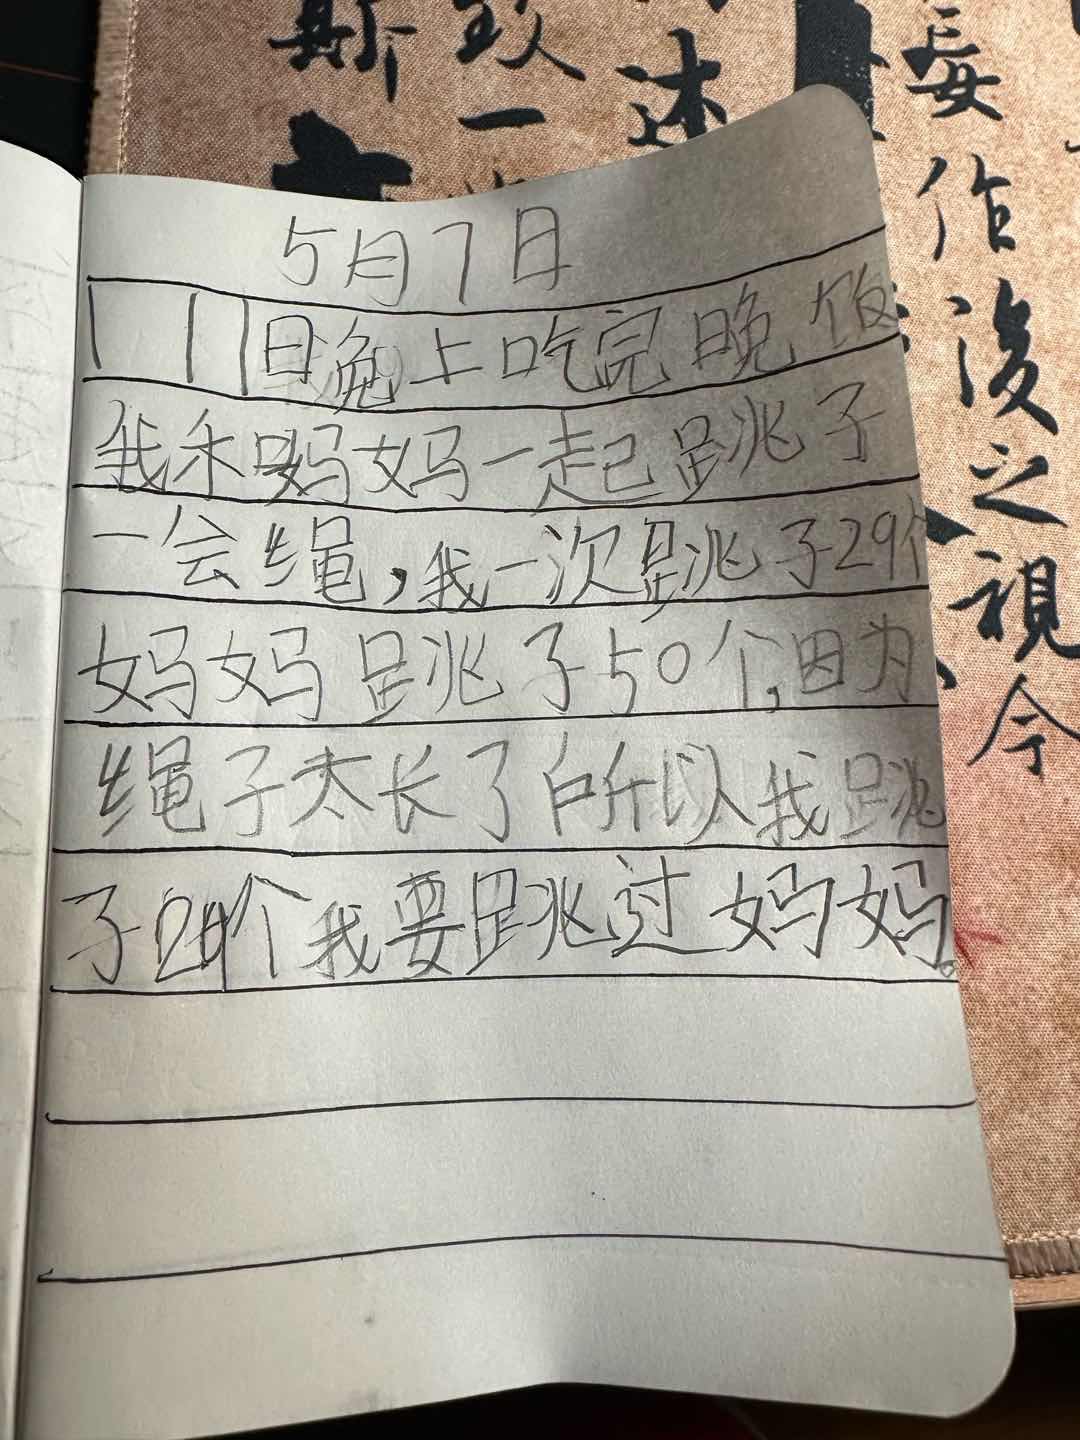 5月7日
晚上吃完晚饭
我禾妈妈一起跳子
一会绳,我一次跳子29个
妈妈跳子50个,因为
绳子太长了所以我跳
子29个我要跳过妈妈。
斯
致一
述
妄作
後之視今